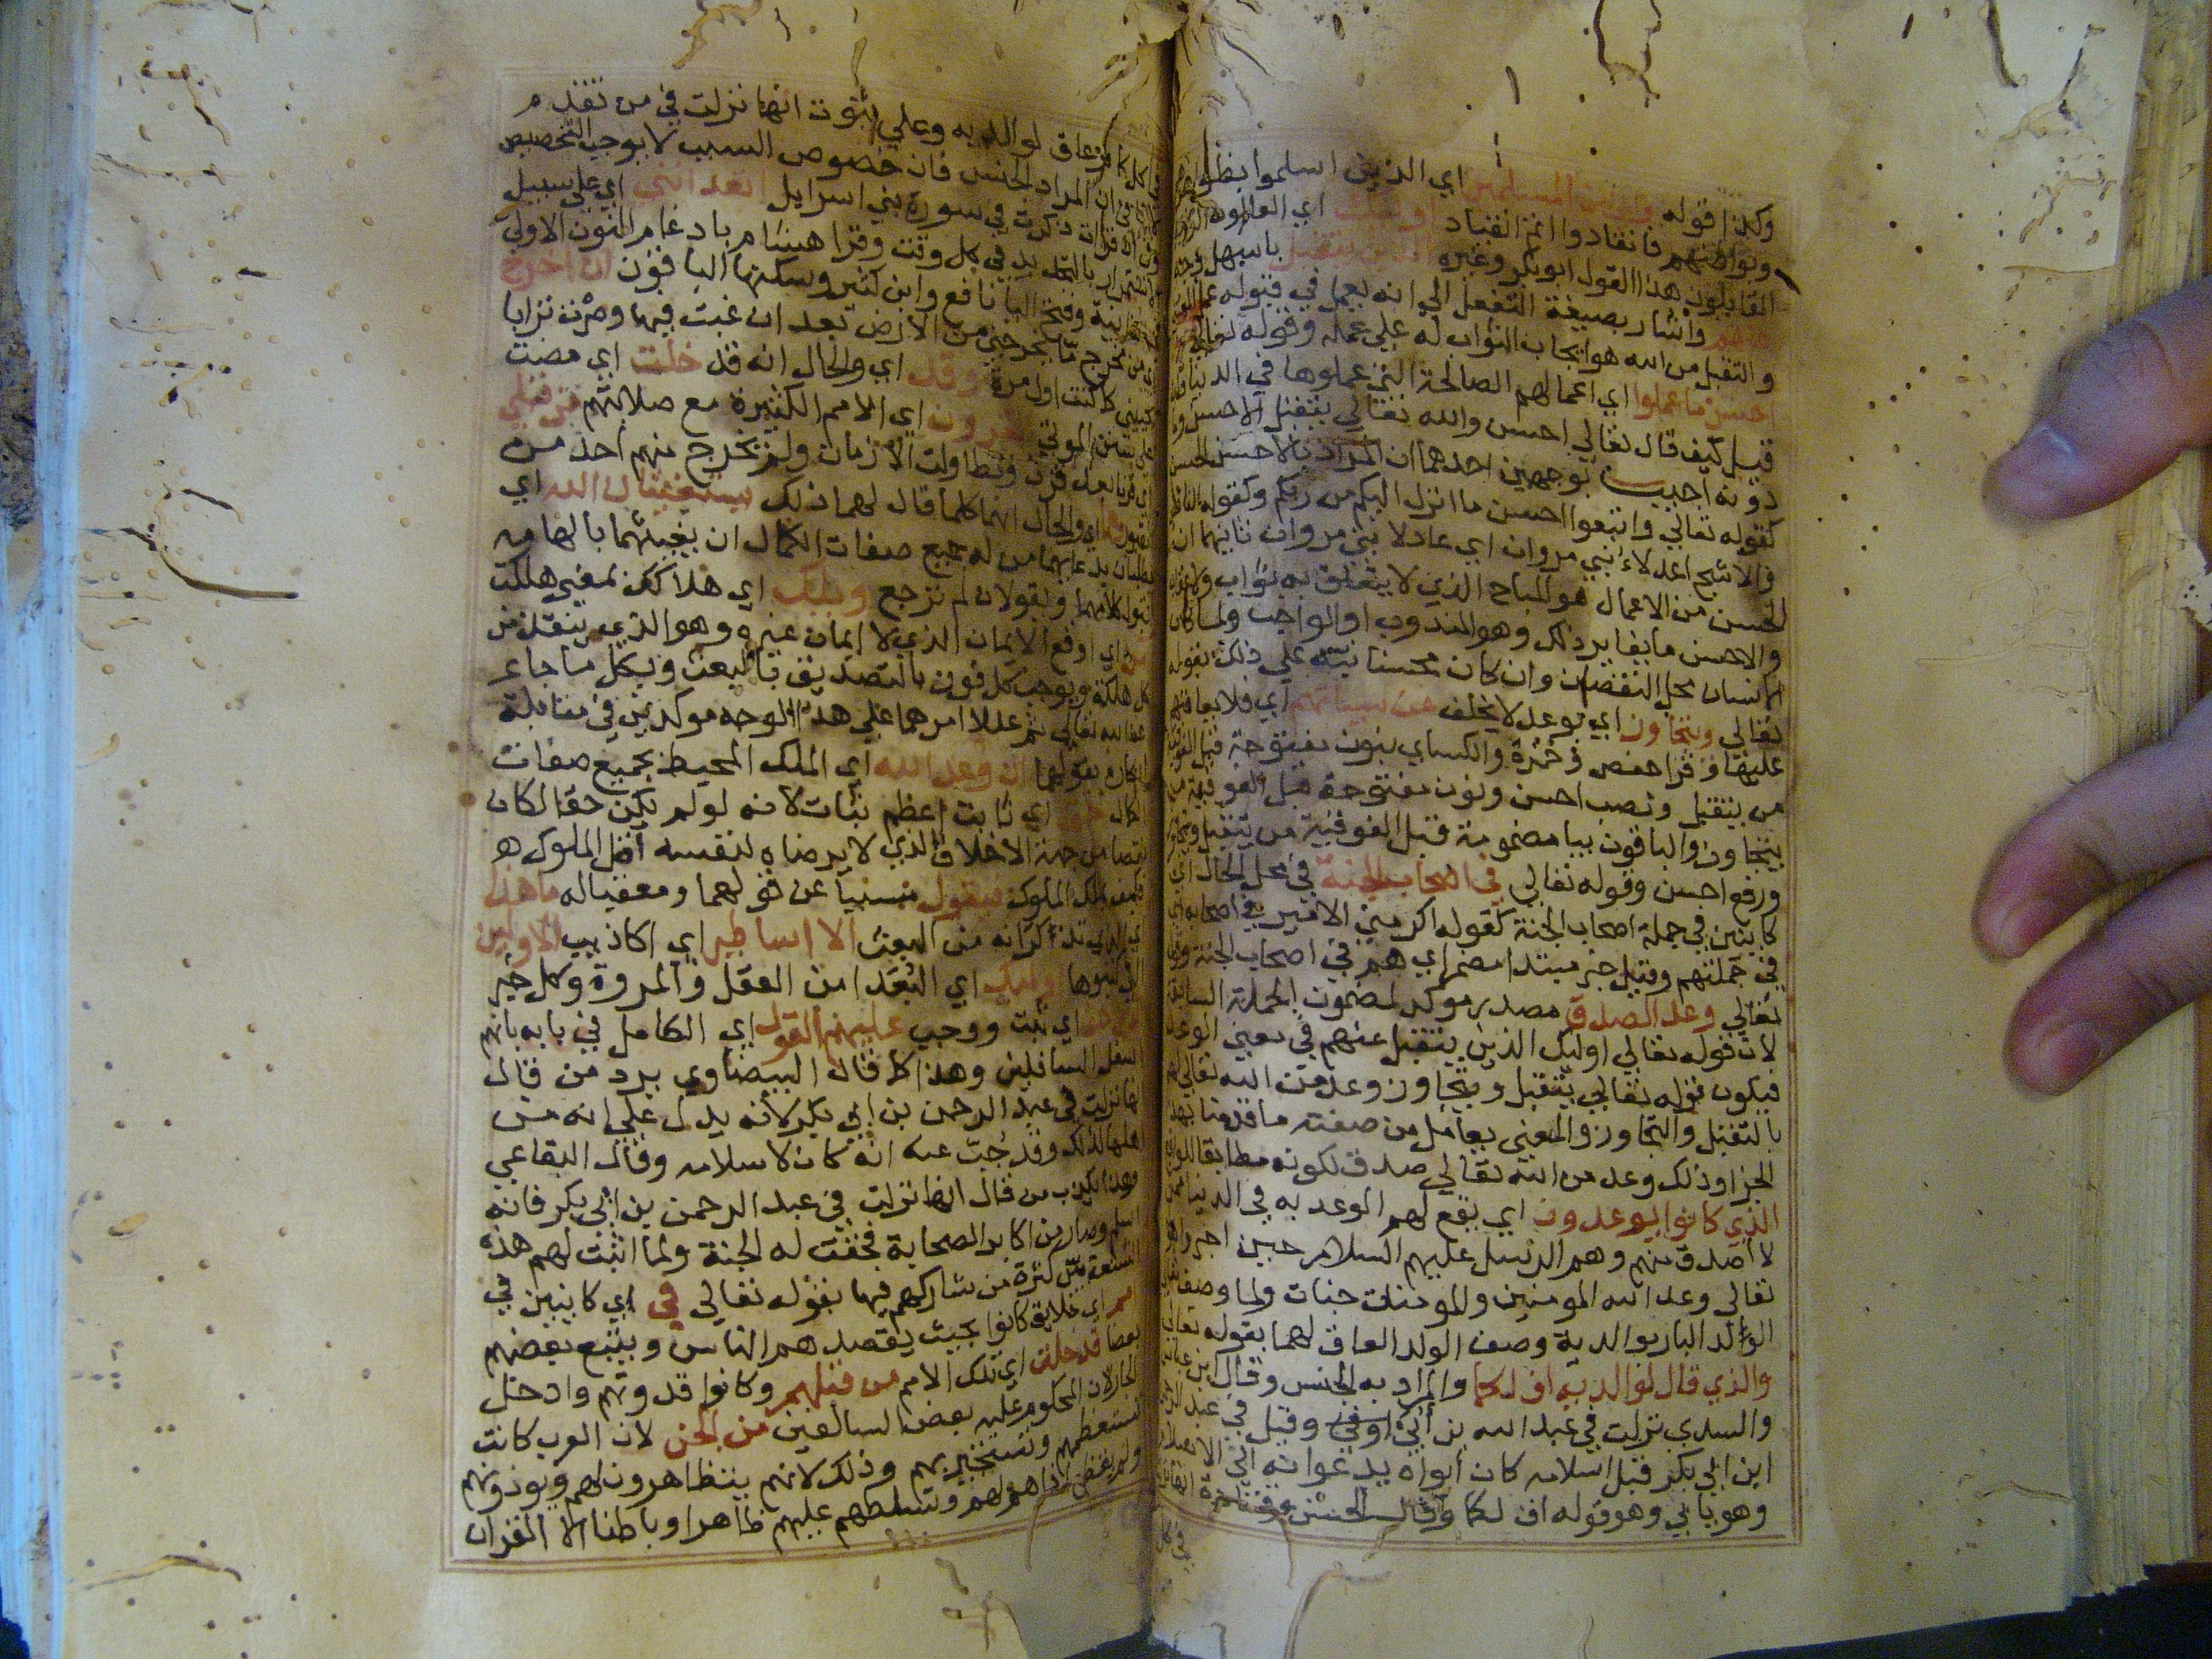 وكذا قوله من المسلمين اي الذين اسلموا بظواهرهم
وبواطنهم فانقادوا اتم انقياد اوليك اي العالوا الرتبة
القايلون هذا القول ابو بكر وغيره الذين يتقبل باسهل وجه
عنهم واشار بصيغة التفعل الي انه يعمل في قبوله عمل
والتقبل من الله هو ايجاب الثواب له علي عمله وقوله تعالي
احسن ما عملوا اي اعمالهم الصالحة التي عملوها في الدنيا فان
قيل كيف قال تعالي احسن والله تعالي يتقبل الاحسن وما
دونه اجيب بوجهين احدهما ان المراد بالاحسن الحسن
كقوله تعالي واتبعوا احسن ما انزل اليكم من ربكم وكقوله الناقص
والاشج اعدلا بني مروان اي عادلا بني مروان ثانيهما ان
الحسن من الاعمال هو المباح الذي لا يتعلق به ثواب ولا عقاب
والاحسن ما يغاير ذلك وهو المندوب او الواجب ولما كان
الانسان محل النقصان وان كان محسنا نبه علي ذلك بقوله
تعالي ويتجاوز اي بوعد لا يخلف عن سيياتهم اي فلا يعاقبهم
عليها وقرا حفص وحمزة والكساي بنون مفتوحة قبل الفوقية
من يتقبل ونصب احسن ونون مفتوحة قبل الفوقية من
يتجاوز والباقون بيا مضمومة قبل الفوقية من يتقبل ويتجاوز
ورفع احسن وقوله تعالي في اصحاب الجنة في محل الحال اي
كاينين في جملة اصحاب الجنة كقوله اكرمني الامير في اصحابه اي
في جملتهم وقيل خبر مبتدا مضمر اي هم في اصحاب الجنة وقوله
تعالي وعد الصدق مصدر موكد لمضمون الجملة السابقة
لان قوله تعالي اوليك الذين يتقبل عنهم في معني الوعد
فيكون قوله تعالي يتقبل ويتجاوز وعد من الله تعالي لهم
بالتقبل والتجاوز والمعني يعامل من صفته ما قدمنا بهذا
الجزا وذلك وعد من الله تعالي صدق لكونه مطابقا للواقع
الذي كانوا يوعدون اي يقع لهم الوعد به في الدنيا ممن
لا اصدق منهم وهم الرسل عليهم السلام حين اخبروا
تعالي وعد الله المومنين والمومنات جنات ولما وصف تعالي
الولد البار بوالديه وصف الولد العاق لهما بقوله تعالي
والذي قال لوالديه اف لكما والمراد به الجنس وقال ابن عباس
والسدي نزلت في عبد الله بن ابي اوفي وقيل في عبد الرحمن
ابن ابي بكر قبل اسلامه كان ابواه يدعوانه الي الاسلام
وهو يابي وهو قوله اف لكما وقال الحسن وقتادة انها
في كل
كافر عاق لوالديه وعلي ثبوت انها نزلت في من تقدم
ان المراد الجنس فان خصوص السبب لا يوجب التخصيص
قراات ذكرت في سورة بني اسرايل اتعدانني اي علي سبيل
الاستمرار بالتجديد في كل وقت وقرا هشام بادغام النون الاولي
في الثانية وفتح اليا نافع وابن كثير وسكنها الباقون ان اخرج
اي من مخرج ما يخرجني من الارض بعد ان غبت فيها وصرت ترابا
يحييني كما كنت اول مرة وقد اي والحال انه قد خلت اي مضت
علي سنن الموتي القرون اي الامم الكثيرة مع صلابتهم من قبلي
اي قرنا بعد قرن وتطاولت الازمان ولم يخرج منهم احد من
القبور وهما اي والحال انهما كلما قال لهما ذلك يستغيثان الله اي
يطلبان بدعايهما من له جميع صفات الكمال ان يغيثهما بالهامه
قبول كلامهما ويقولان لم ترجع ويلك اي هلاكك بمعني هلكت
امن اي اوقع الايمان الذي لا ايمان غيره وهو الذي ينقذ من
كل هلكة ويوجب كل فوز بالتصديق بالبعث وبكل ما جا عن
عند الله تعالي ثم عللا امرهما علي هذا الوجه موكدين في مقابلة
انكاره بقولهما ان وعد الله اي الملك المحيط بجميع صفات
الكمال حق اي ثابت اعظم ثبات لانه لو لم يكن حقا لكان
نقصا من جهة الاخلاف الذي لا يرضاه لنفسه اقل الملوك
فكيف بملك الملوك فيقول مسببا عن قولهما ومعقبا له ما هذا
اي الذي تذكرانه من البعث الا اساطير اي اكاذيب الاولين
التي كتبوها اوليك اي البعدا من العقل والمروة وكل خير
الذين حق اي ثبت ووجب عليهم القول اي الكامل في بابه بانهم
اسفل السافلين وهذا كما قال البيضاوي يرد من قال
انها نزلت في عبد الرحمن بن ابي بكر لانه يدل علي انه من
اهلها لذلك وقد جب عنه انه كان لاسلامه وقال البقاعي
وهذا يكذب من قال انها نزلت في عبد الرحمن بن ابي بكر فانه
اسلم وصار من اكابر الصحابة فحقت له الجنة ولما اثبت لهم هذه
الشنعة بين كثرة من شاركهم فيها بقوله تعالي في اي كاينين في
امم اي خلايق كانوا بحيث يقصدهم الناس ويتبع بعضهم
بعضا قد خلت اي تلك الامم من قبلهم وكانوا قدوتهم وادخل
الجار لان المحكوم عليه بعض السالفين من الجن لان العرب كانت
تستعظمهم وتستجير بهم وذلك لانهم يتظاهرون لهم ويوذونهم
ولم يقطع اذاهم لهم وتسلطهم عليهم ظاهرا وباطنا الا القران